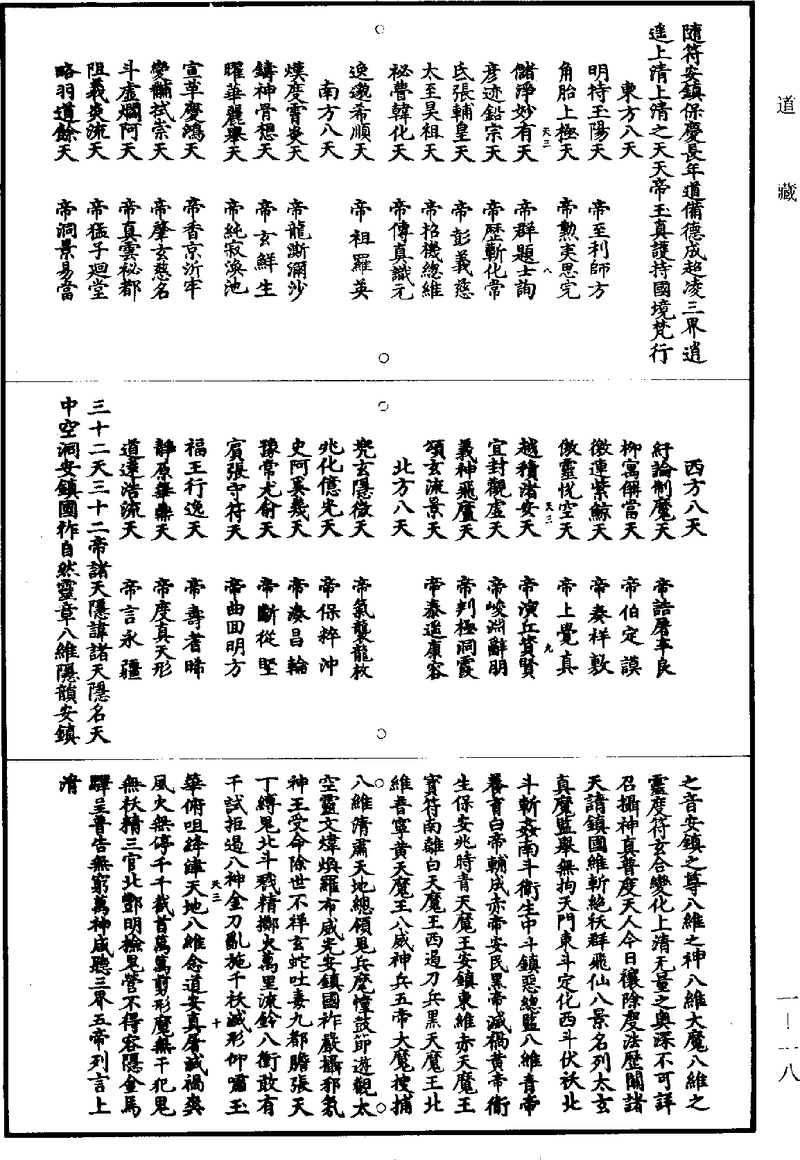 道藏
隨符安鎮保慶長年道備德成超凌三界逍
遥上清上清之天天帝玉真護持國境梵行
東方八天
明持王陽天 帝至利師方
角胎上極天 帝勲夷思完
儲淨妙有天 帝群題士詢
天三 八
彦迹鉛宗天 帝歷斬化常
氐張輔皇天 帝彭義慈
太至昊祖天 帝招機總維
秘曹韓化天 帝傳真識元
逸邀希順天 帝祖羅英
南方八天
熯度霄炎天 帝龍澌瀰沙
鑄神骨想天 帝玄鮮生
曜華麗舉天 帝純寂渙池
宣草慶鴻天 帝香京沂牢
變黼拭宗天 帝肇玄慈名
斗虛爛阿天 帝真雲秘都
阻義炎流天 帝猛子迴堂
略羽道餘天 帝洞景易當
西方八天
紆論制魔天 帝誥屠車良
柳寓儛當天 帝伯定謨
徵連紫鯨天 帝奏祥敷
倣靈恍空天 帝上覺真
越積渚安天 帝演丘蕢賢
天三 九
宜封觀虛天 帝峻淵辭朋
義神飛廬天 帝判極洞霞
頌玄流景天 帝泰遥庫容
北方八天
兠玄隱微天 帝氣襲龍枚
兆化億光天 帝保粹沖
史阿奚幾天 帝湊昌輪
豫常尤俞天 帝斷從堅
賓張守符天 帝曲田明方
福王行逸天 帝壽著晞
靜原華樂天 帝度真天形
道達浩流天 帝言永疆
三十二天三十二帝諸天隱諱諸天隱名天
中空洞安鎮國祚自然靈章八維隱韻安鎮
之音安鎮之尊八維之神八維大魔八維之
靈度符玄合變化上清无量之奥深不可詳
召攝神真普度天人今日禳除慶法歷關諸
天請鎮國維斬絶袄群飛仙八景名列太玄
真魔監舉無拘天門東斗定化西斗伏袄北
斗斬姦南斗衛生中斗鎮惡總監八維青帝
養育白帝輔成赤帝安民黑帝滅禍黄帝衛
生保安兆時青天魔王安鎮東維赤天魔王
寳符南離白天魔王西遏刀兵黑天魔王北
維普寧黄天魔王八威神兵五帝大魔搜捕
八維清肅天地總領鬼兵麾幢鼓節遊觀太
空靈文煒煥羅布威光安鎮國祚嚴攝邪氛
神王受命除世不祥玄蛇吐毒九都膽張天
丁縛鬼北斗戮精擲火萬里流鈴八衝敢有
干試拒遏八神金刀亂施千袄滅形仰嘯玉
天三 十
華俯咀絳津天地八維僉道安真屠滅禍奕
風火無停千千截首萬萬剪形魔無干犯鬼
無袄精三官北酆明檢鬼營不得容隱金馬
驛呈普告無窮萬神咸聽三界五帝列言上
清
一—一八